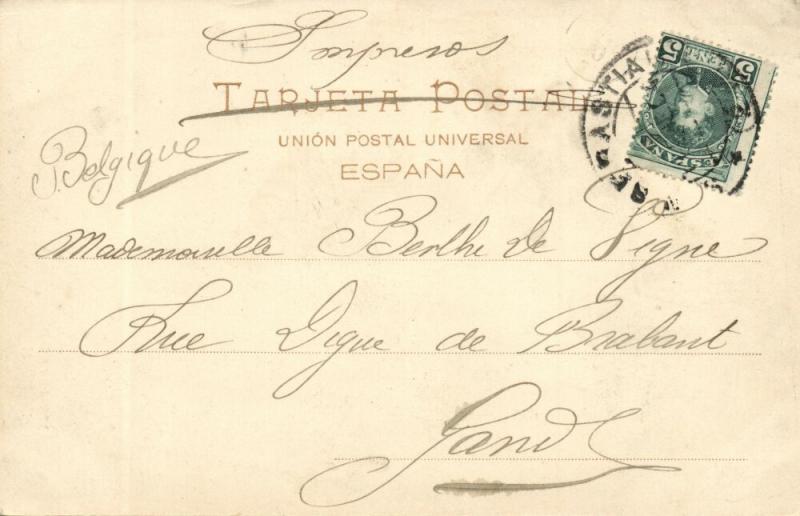 Impresos
TARJETA POSTAL
UNIÓN POSTAL UNIVERSAL
ESPAÑA
Belgique
Mademoiselle Berthe De Vigne
Rue Digue de Brabant
Gand
5 5
ESPAÑA
SEBASTIAN